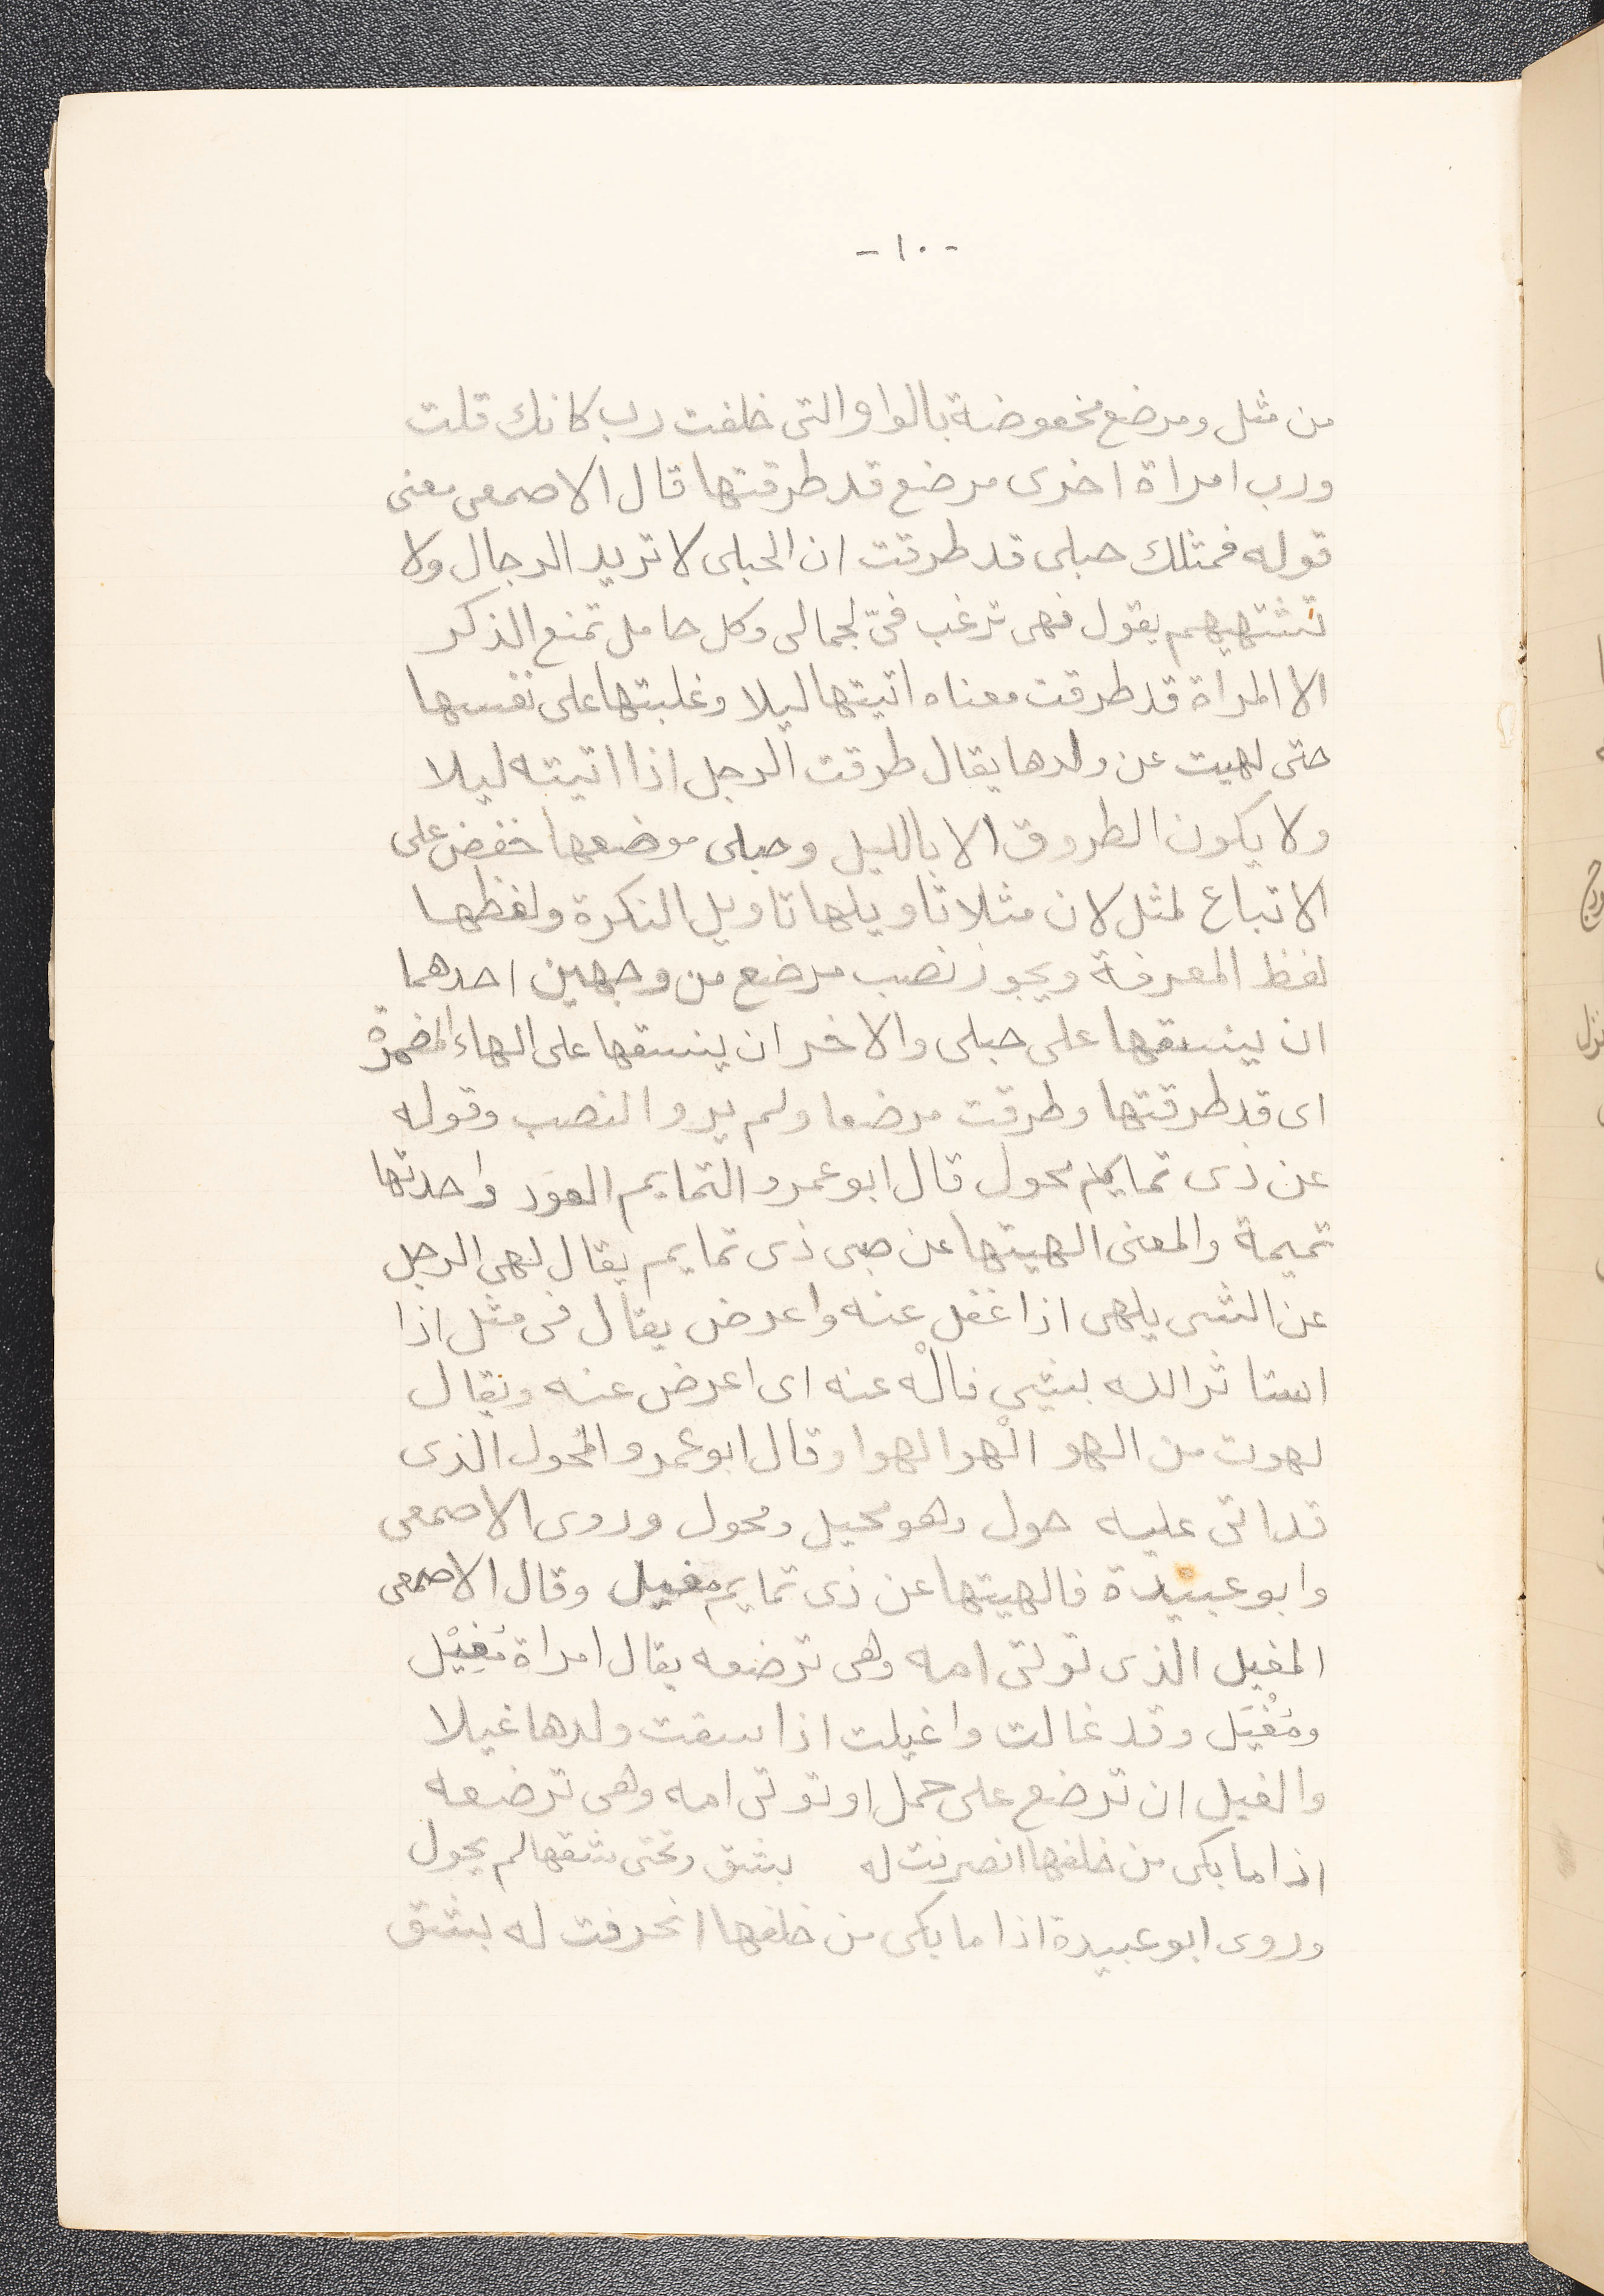 - ١٠ -
من مثل ومرضع مخفوضة بالواو التى خلفت رب كانك قلت
ورب امراة اخرى مرضع قد طرقتها قال الاصمعى معنى
قوله فمثلك حبلى قد طرقت ان الحبلى لا تريد الرجال ولا
تشتهيهم يقول فهى ترغب فىّ لجمالى وكل حامل تمنع الذكر
الا المراة قد طرقت معناه اتيتها ليلا وغلبتها على نفسها
حتى لهيت عن ولدها يقال طرقت الرجل اذا اتيته ليلا
ولا يكون الطروق الا بالليل وحبلى موضعها خفض على
الاتباع لمثل لان مثلا تاويلها تاويل النكرة ولفظها
لفظ المعرفة ويجوز نصب مرضع من وجهين احدهما
ان ينسقها على حبلى والاخر ان ينسقها على الهاء المضمرة
اى قد طرقتها وطرقت مرضعا ولم يرو النصب وقوله
عن ذى تمايم محول قال ابو عمرو التمايم العوَد واحدتها
تميمة والمعنى الهيتها عن صبى ذى تمايم يقال لهى الرجل
عن الشى يلهى اذا غفل عنه واعرض يقال فى مثل اذا
استاثر الله بشيى فالْه عنه اى اعرض عنه ويقال
لهوت من الهو الْهو الهوا وقال ابو عمرو المُحول الذى
قد اتى عليه حول وهو محيل ومحول وروى الاصمعى
وابو عبيدة فالهيتها عن ذى تمايم مغيل وقال الاصمعى
المغيل الذى توتى امه وهى ترضعه يقال امراة مُغِيْل
ومُغْيَل وقد غالت واغيلت اذا سقت ولدها غيلا
والغيل ان ترضع على حمل او توتى امه وهى ترضعه
اذا ما بكى من خلفها انصرفت له بشق وتحتى شقها لم يحول
وروى ابو عبيدة اذا ما بكى من خلفها انحرفت له بشق